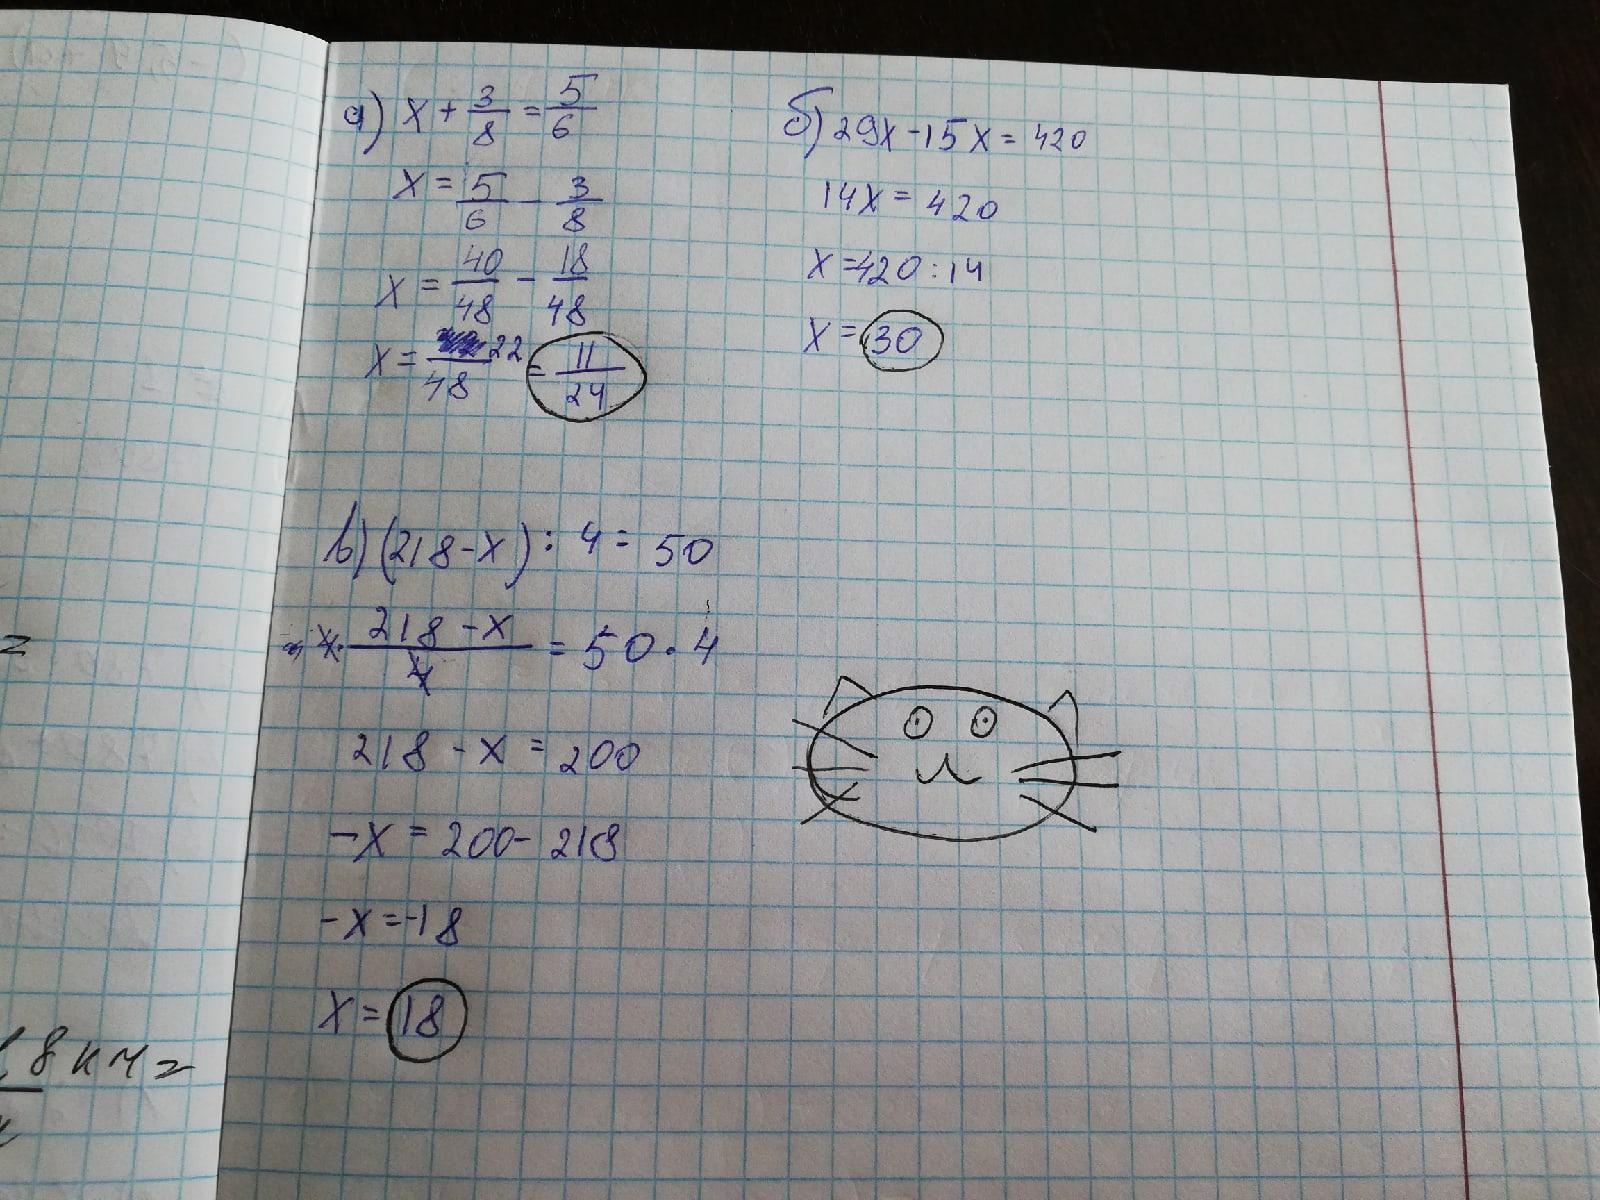 а) x + 3/8 = 5/6
x = 5/6 - 3/8
x = 40/48 - 18/48
x = 22/48 = 11/24
б) 29x - 15x = 420
14x = 420
x = 420 : 14
x = 30
в) (218 - x) : 4 = 50
4 · (218 - x)/4 = 50 · 4
218 - x = 200
-x = 200 - 218
-x = -18
x = 18
=
8 км =